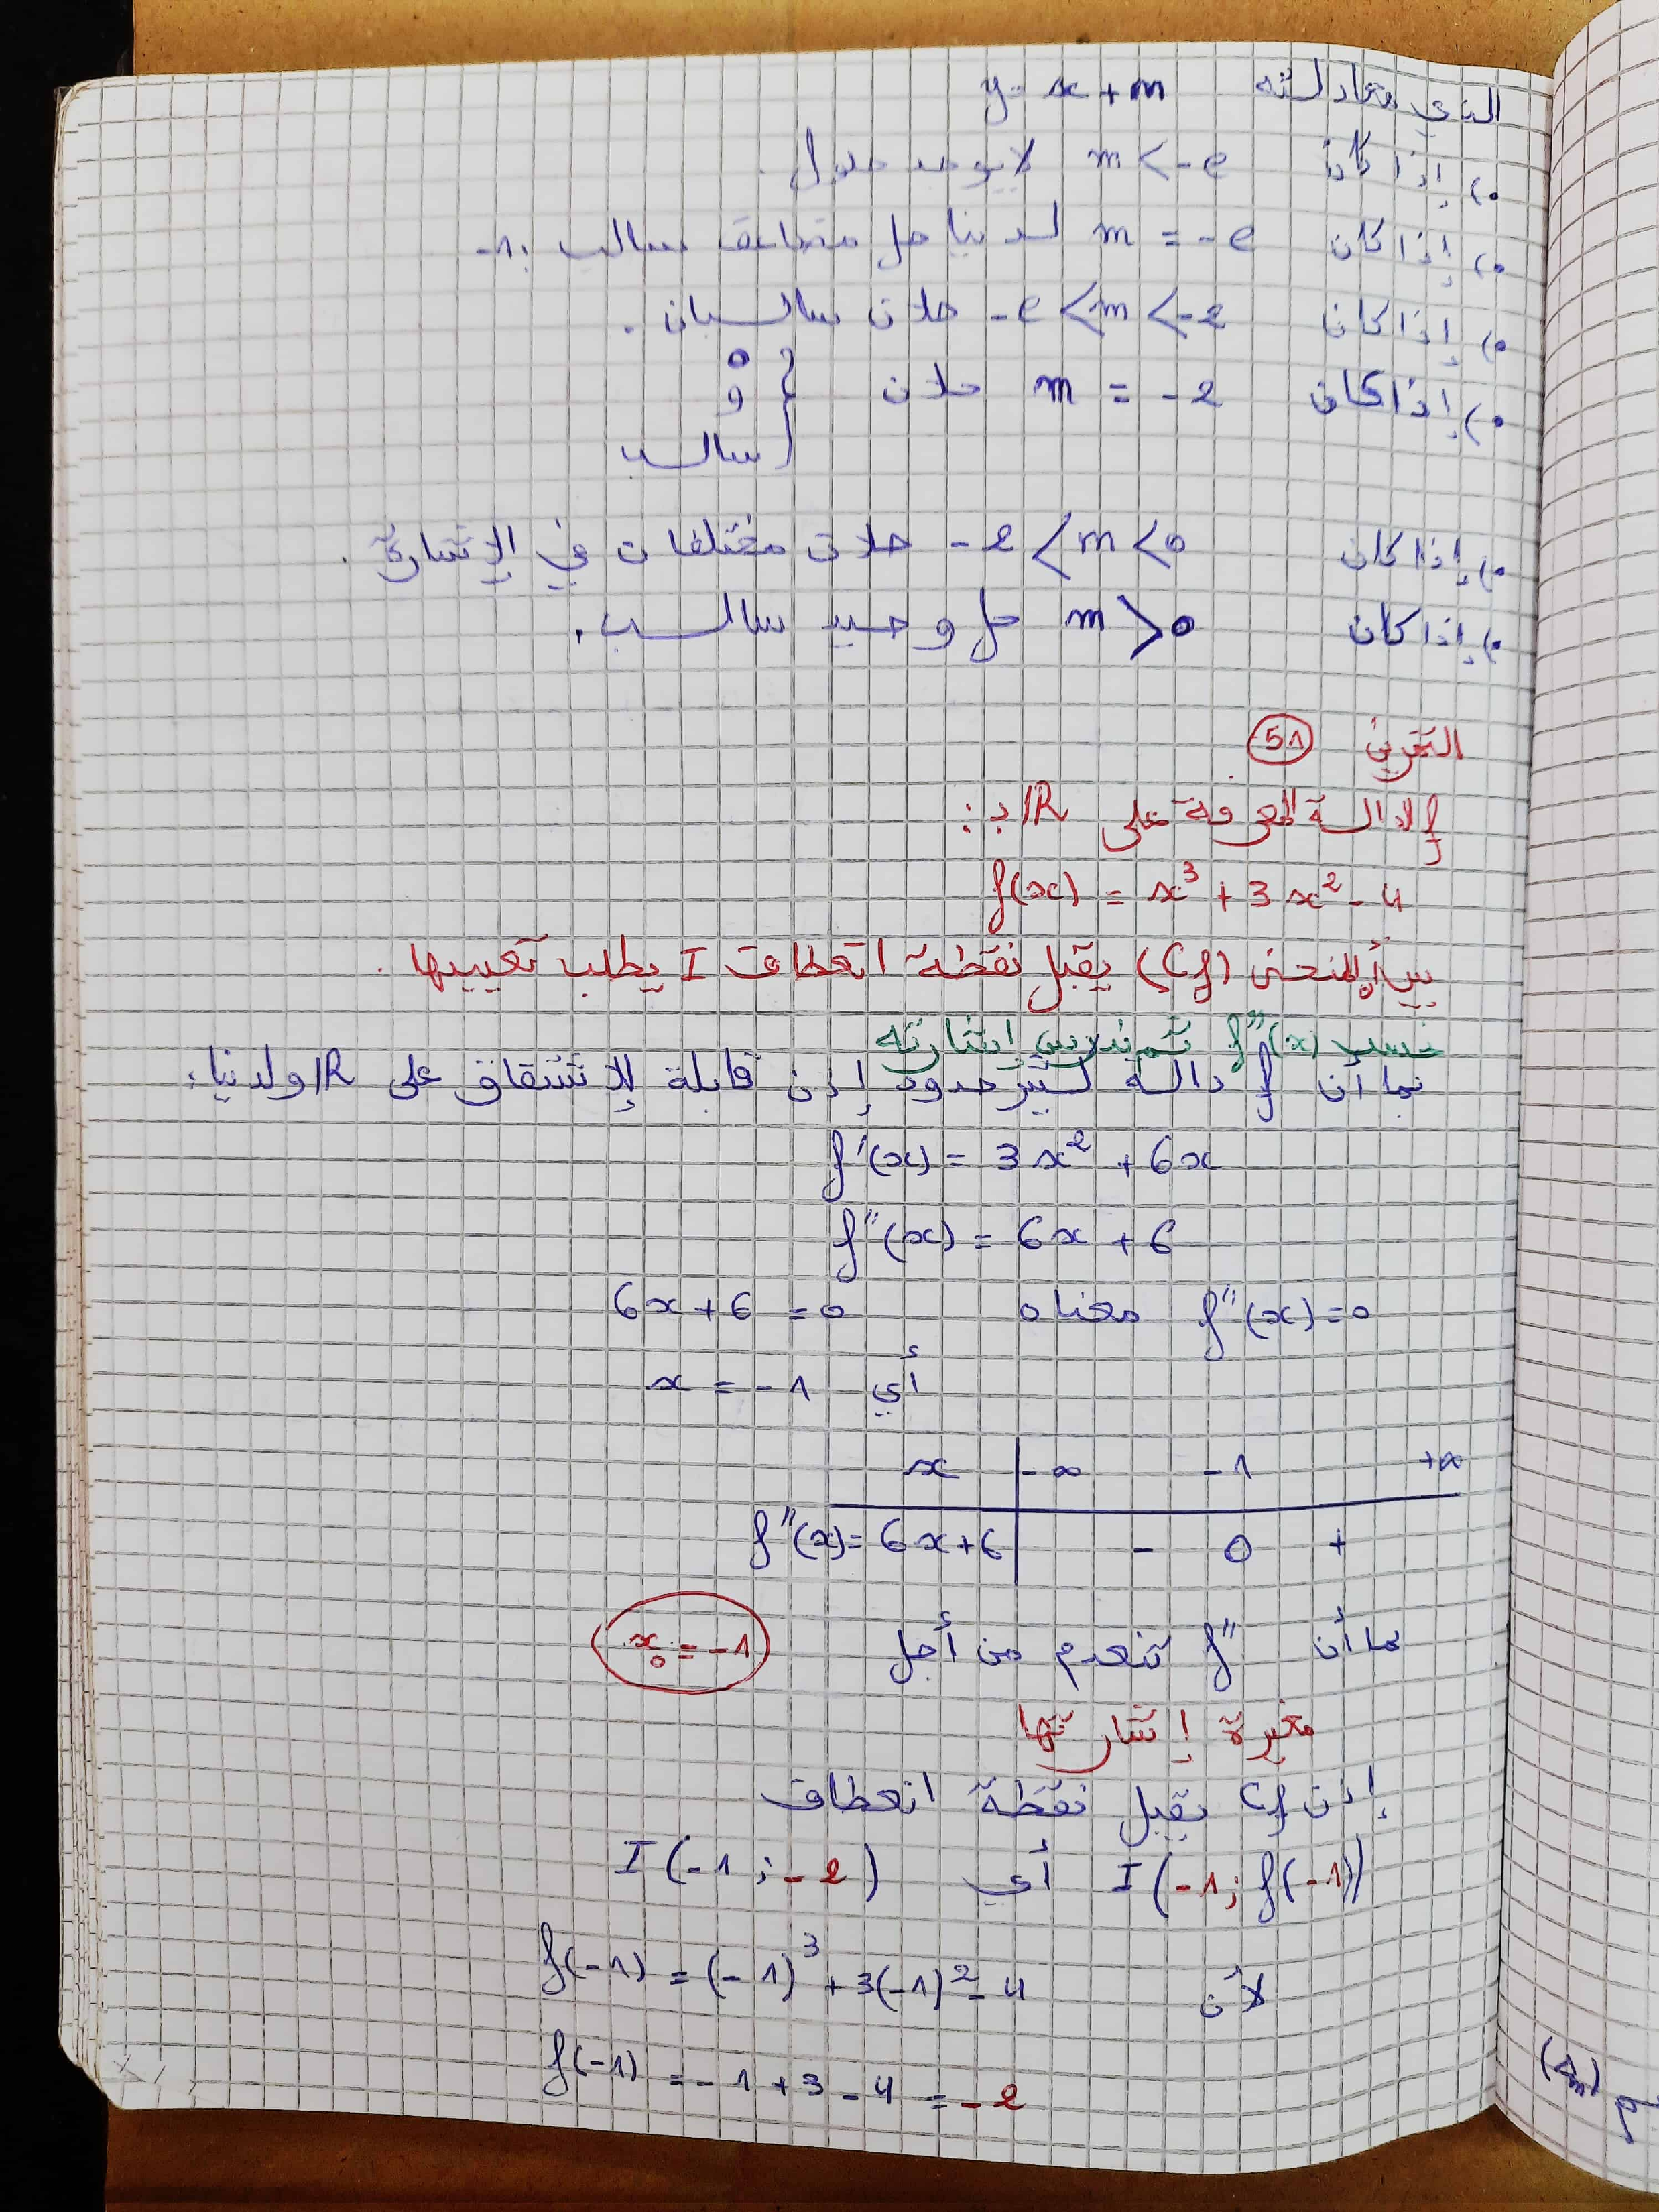 الذي معادلته y = x + m
•) إذا كان m < -e لا يوجد حلول.
•) إذا كان m = -e لدينا حل مضاعف سالب -1.
•) إذا كان -e < m < -2 حلان سالبان.
•) إذا كان m = -2 حلان { 0
و
سالب
•) إذا كان -2 < m < 0 حلان مختلفان في الإشارة.
•) إذا كان m > 0 حل وحيد سالب.
التمرين 51
f الدالة المعرفة على IR بـ:
f(x) = x³ + 3x² - 4
بين أن المنحنى (Cf) يقبل نقطة انعطاف I يطلب تعيينها.
نحسب f''(x) ثم ندرس إشارته
بما أن f دالة كثير حدود إذن قابلة للإشتقاق على IR ولدينا:
f'(x) = 3x² + 6x
f''(x) = 6x + 6
f''(x) = 0 معناه 6x + 6 = 0
أي x = -1
x | -∞ -1 +∞
f''(x) = 6x + 6 | - 0 +
بما أن f'' تنعدم من أجل x₀ = -1
مغيرة إشارتها
إذن Cf يقبل نقطة انعطاف
I(-1; f(-1)) أي I(-1; -2)
لأن f(-1) = (-1)³ + 3(-1)² - 4
f(-1) = -1 + 3 - 4 = -2
(Δm)